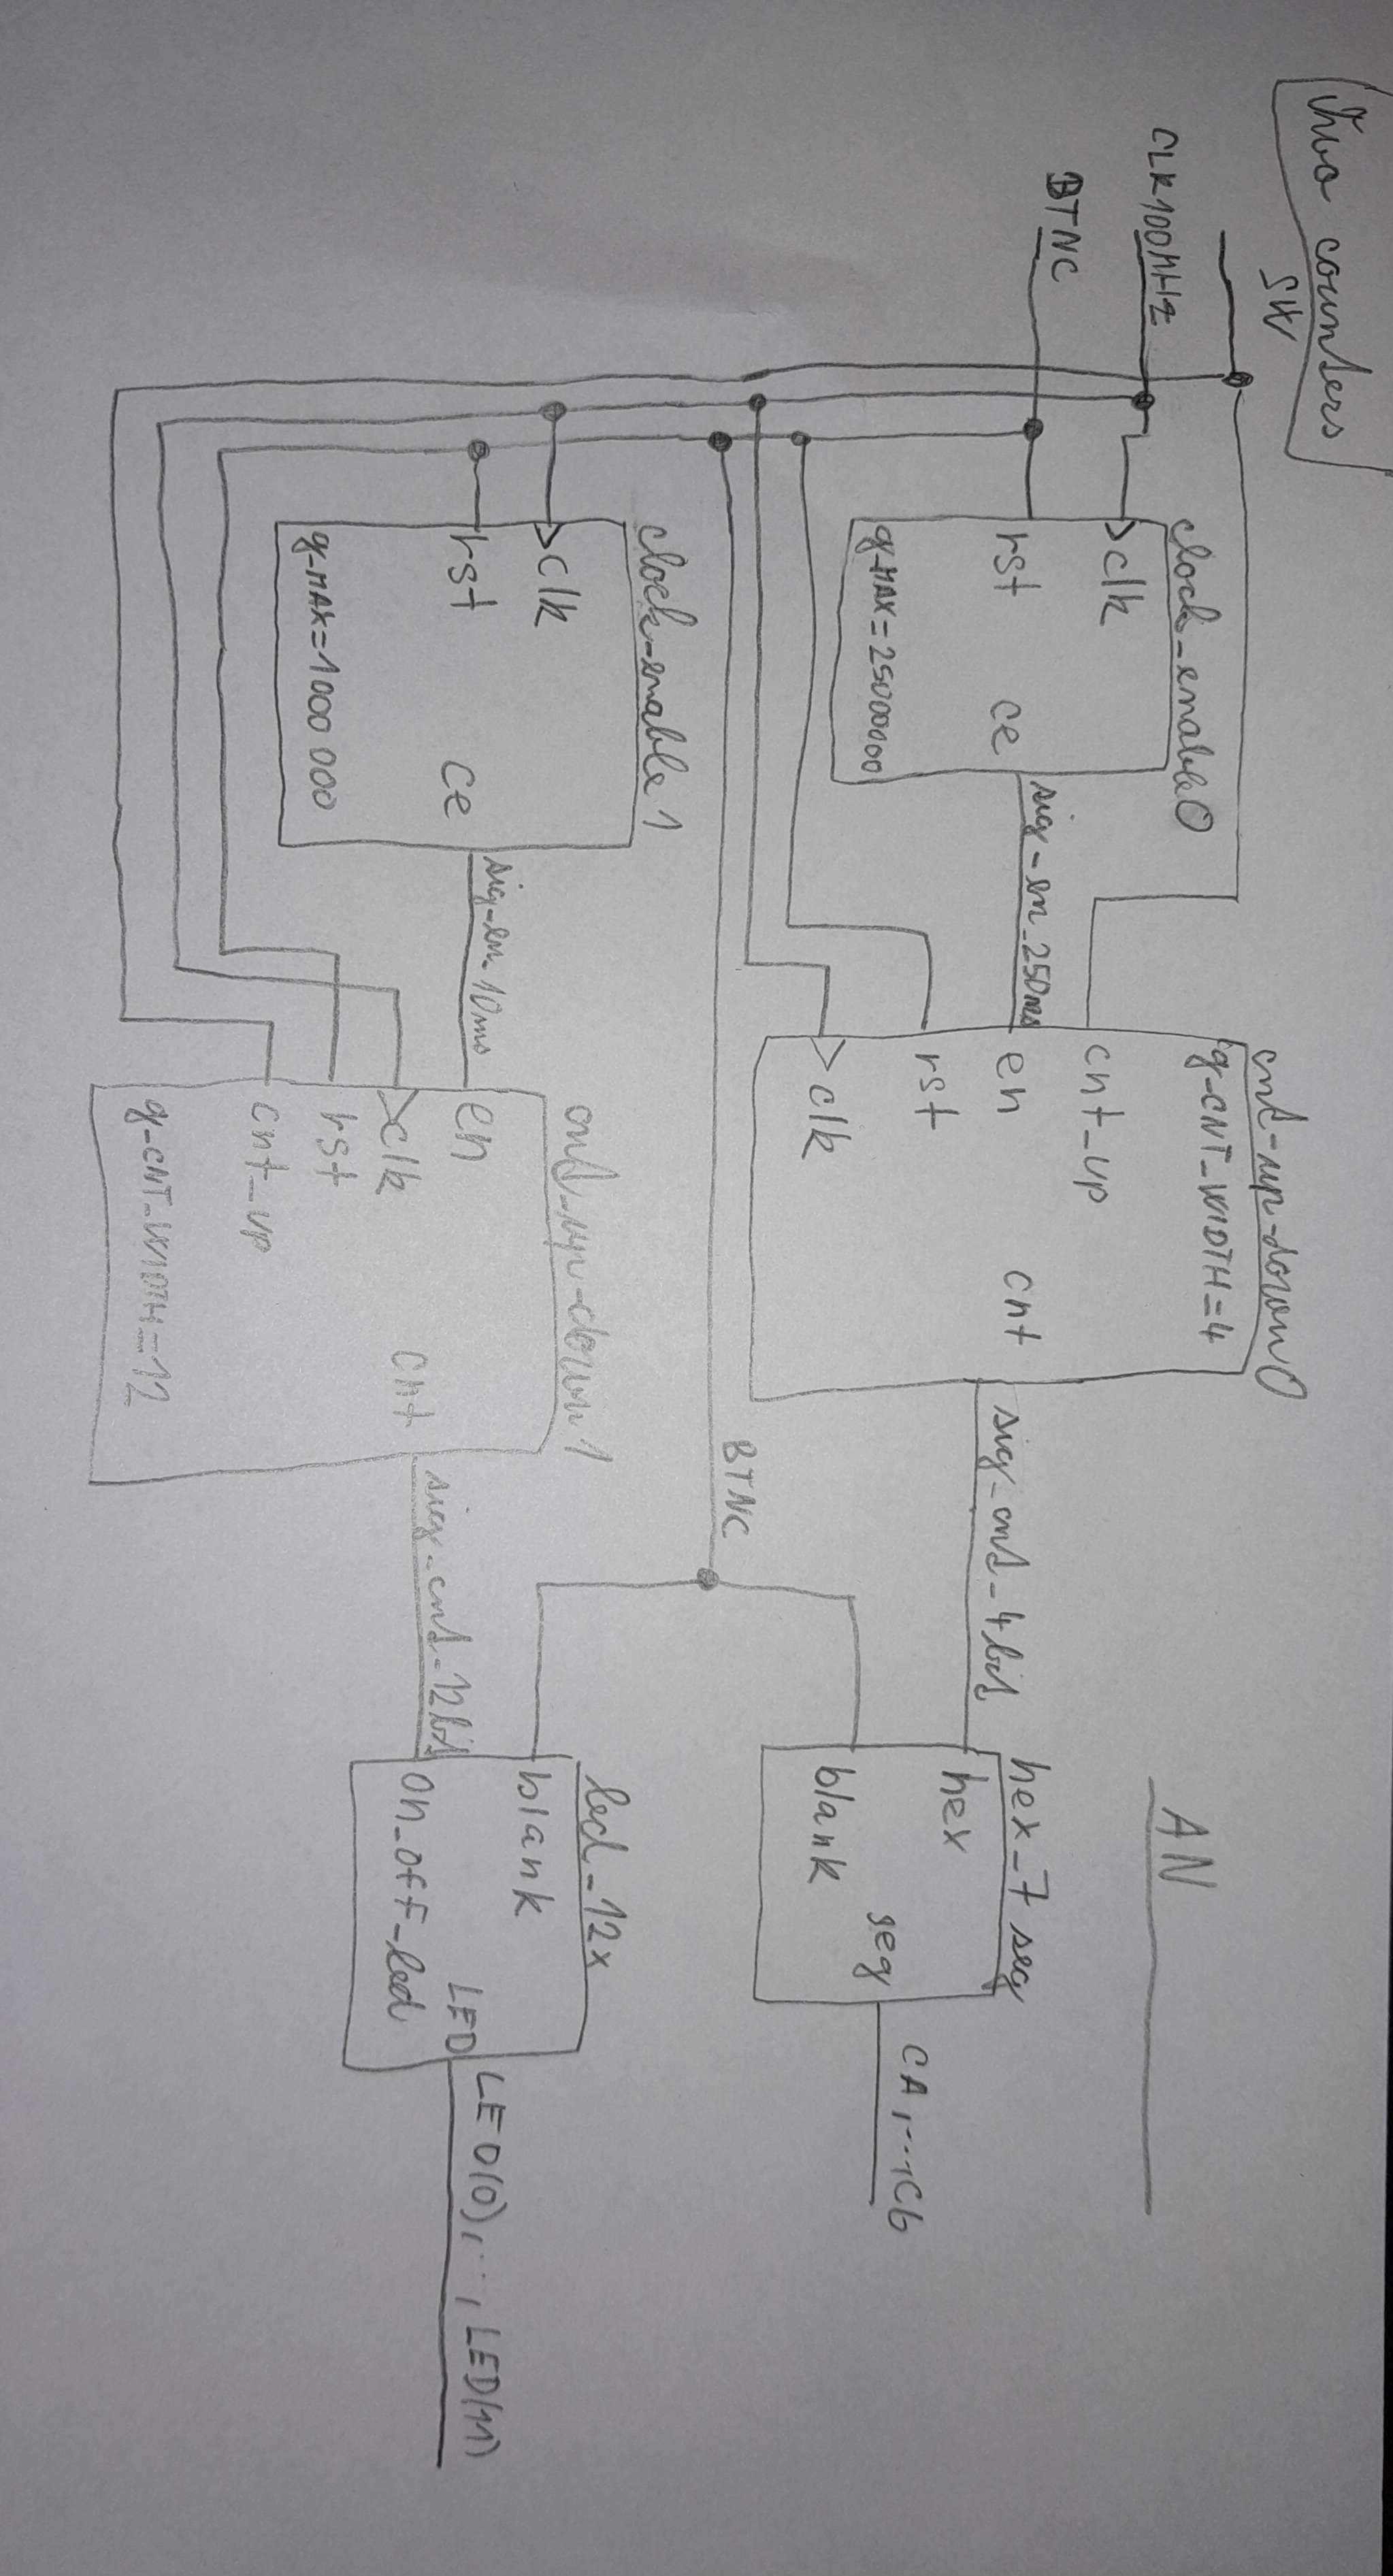 Two counters
SW
CLK100MHz
BTNC
clock_enable0
clk
rst
ce
g_MAX=25000000
sig_en_250ms
cnt-up-down0
g-CNT_WIDTH=4
cnt_up
en
rst
clk
cnt
sig_cnt_4bit
AN
hex_7seg
hex
blank
seg
CA,...,CG
BTNC
clock_enable1
clk
rst
ce
g_MAX=1000 000
sig_en_10ms
cnt_up-down1
en
clk
rst
cnt_up
cnt
g-CNT_WIDTH=12
sig_cnt_12bit
led_12x
blank
on_off_led
LED
LED(0),...,LED(11)